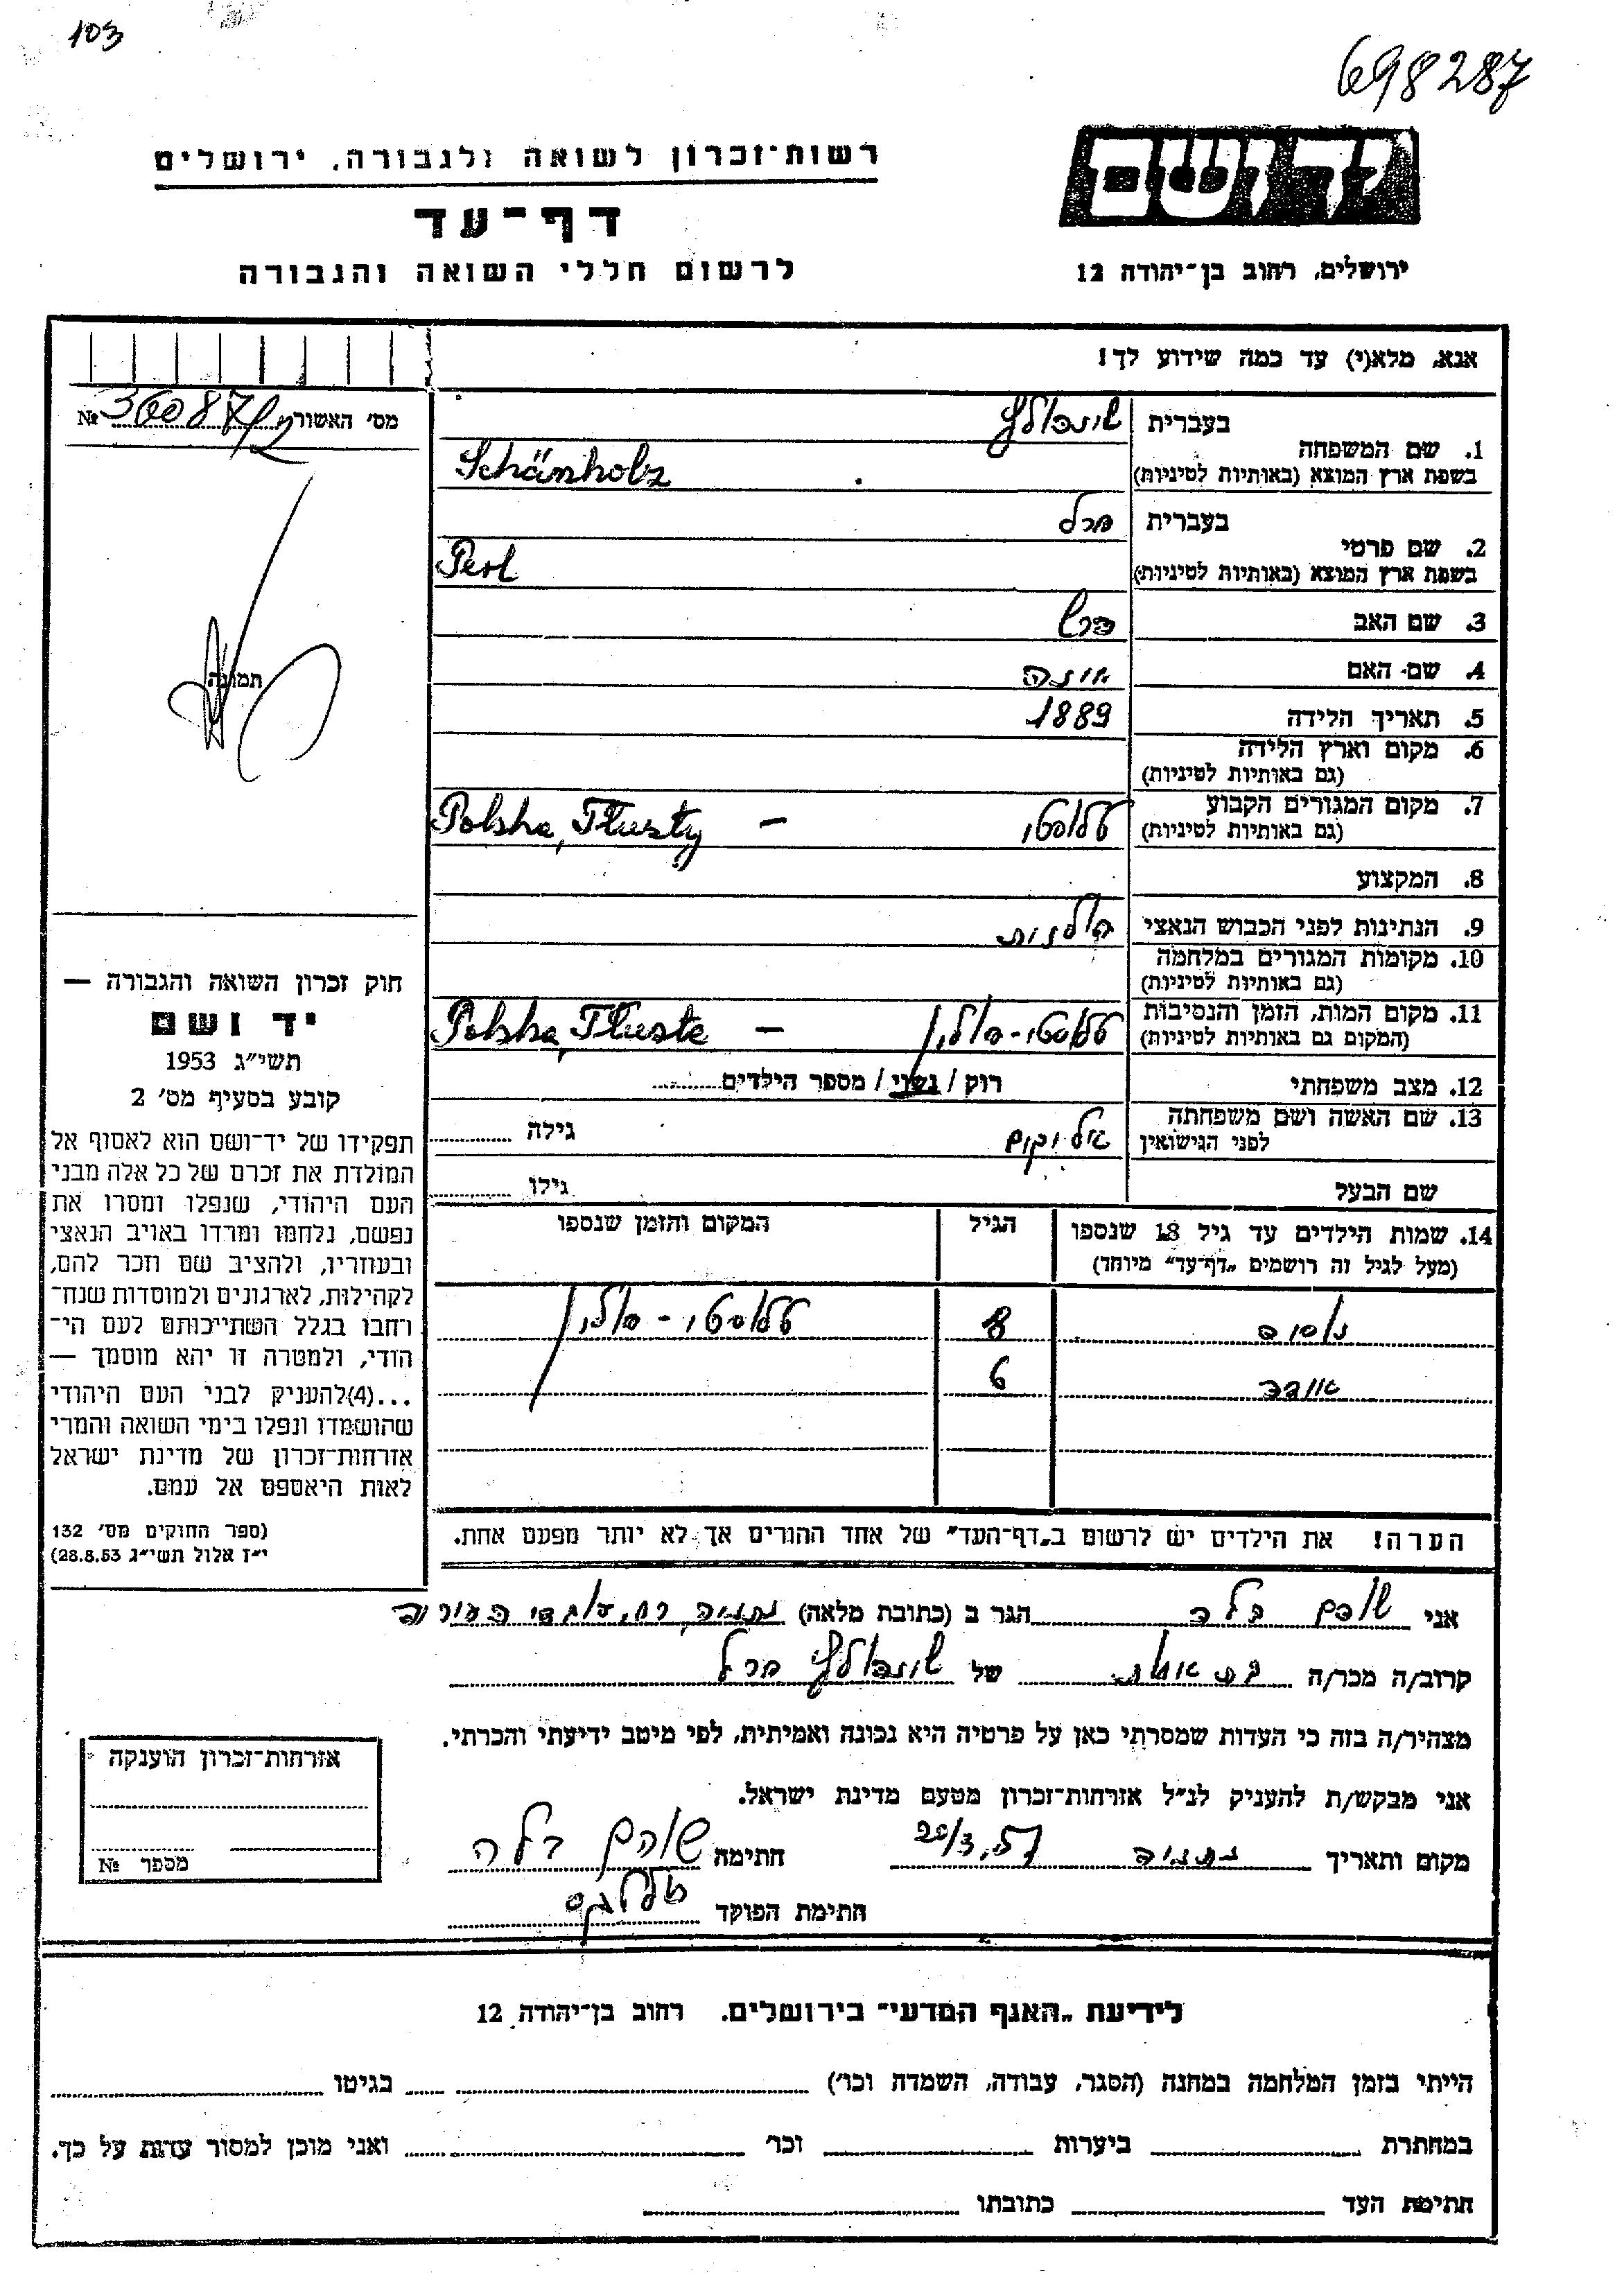 103
698287
יד ושם
רשות־זכרון לשואה ולגבורה, ירושלים
דף־עד
לרשום חללי השואה והגבורה
ירושלים, רחוב בן־יהודה 12
אנא, מלא(י) עד כמה שידוע לך!
מס׳ האשור
№
1. שם המשפחה
בעברית שונהולץ
בשפת ארץ המוצא (באותיות לטיניות) Schänholz
2. שם פרטי
בעברית פרל
בשפת ארץ המוצא (באותיות לטיניות) Perl
3. שם האב
4. שם האם
5. תאריך הלידה 1889
6. מקום וארץ הלידה
(גם באותיות לטיניות)
7. מקום המגורים הקבוע טלוסטי – Polska, Tłusty
(גם באותיות לטיניות)
8. המקצוע
9. הנתינות לפני הכבוש הנאצי פולנית
10. מקומות המגורים במלחמה
(גם באותיות לטיניות)
11. מקום המות, הזמן והנסיבות טלוסטי - פולין – Polska, Tłuste
(המקום גם באותיות לטיניות)
12. מצב משפחתי רוק / נשוי / מספר הילדים
13. שם האשה ושם משפחתה גילה
לפני הנישואין
שם הבעל גילו
14. שמות הילדים עד גיל 18 שנספו הגיל המקום והזמן שנספו
(מעל לגיל זה רושמים „דף־עד״ מיוחד)
8 טלוסטי - פולין
6
הערה! את הילדים יש לרשום ב„דף־העד״ של אחד ההורים אך לא יותר מפעם אחת.
תמונה
חוק זכרון השואה והגבורה —
יד ושם
תשי״ג 1953
קובע בסעיף מס׳ 2
תפקידו של יד־ושם הוא לאסוף אל
המולדת את זכרם של כל אלה מבני
העם היהודי, שנפלו ומסרו את
נפשם, נלחמו ומרדו באויב הנאצי
ובעוזריו, ולהציב שם וזכר להם,
לקהילות, לארגונים ולמוסדות שנח־
רחבו בגלל השתייכותם לעם הי־
הודי, ולמטרה זו יהא מוסמך —
...(4)להעניק לבני העם היהודי
שהושמדו ונפלו בימי השואה והמרי
אזרחות־זכרון של מדינת ישראל
לאות היאספם אל עמם.
(ספר החוקים מס׳ 132
י״ז אלול תשי״ג 28.8.53)
אני שוהם בלה הגר ב (כתובת מלאה) נתניה,
קרוב/ה מכר/ה בת אחות של שונהולץ פרל
מצהיר/ה בזה כי העדות שמסרתי כאן על פרטיה היא נכונה ואמיתית, לפי מיטב ידיעתי והכרתי.
אני מבקש/ת להעניק לנ״ל אזרחות־זכרון מטעם מדינת ישראל.
מקום ותאריך נתניה 20/3.57 חתימה שוהם בלה
חתימת הפוקד
אזרחות־זכרון הוענקה
מספר №
לידיעת „האגף המדעי״ בירושלים. רחוב בן־יהודה 12
הייתי בזמן המלחמה במחנה (הסגר, עבודה, השמדה וכו׳) בגיטו
במחתרת ביערות וכו׳ ואני מוכן למסור עדות על כך.
חתימת העד כתובתו